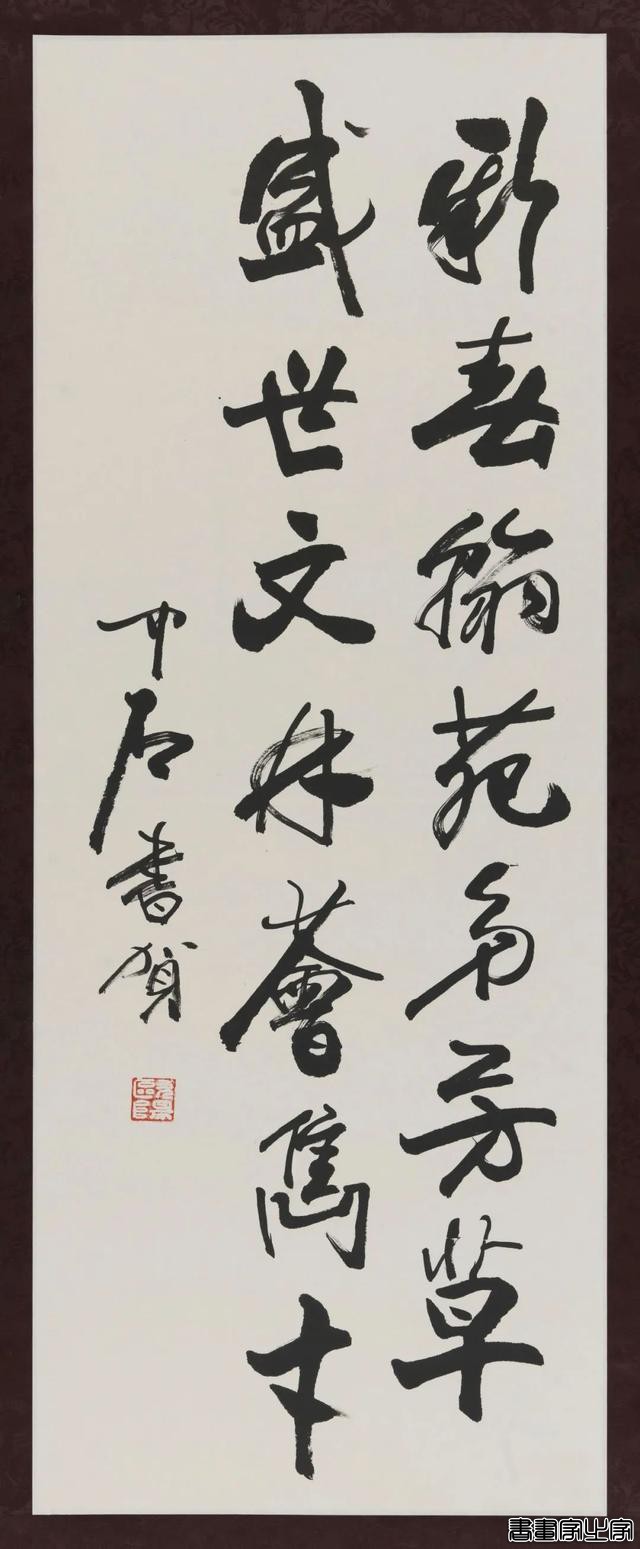 新春翰苑多芳草
盛世文林薈雋才
中石書賀
書畫家之家